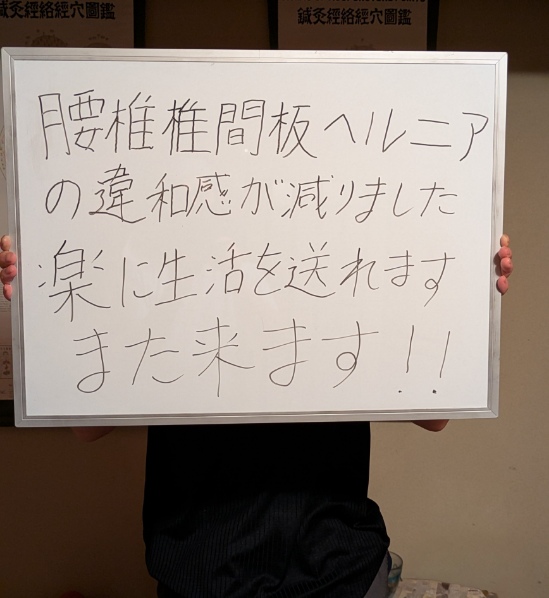 鍼灸經絡經穴圖鑑
鍼灸經絡經穴圖鑑
腰椎椎間板ヘルニア
の違和感が減りました
楽に生活を送れます
また来ます!!